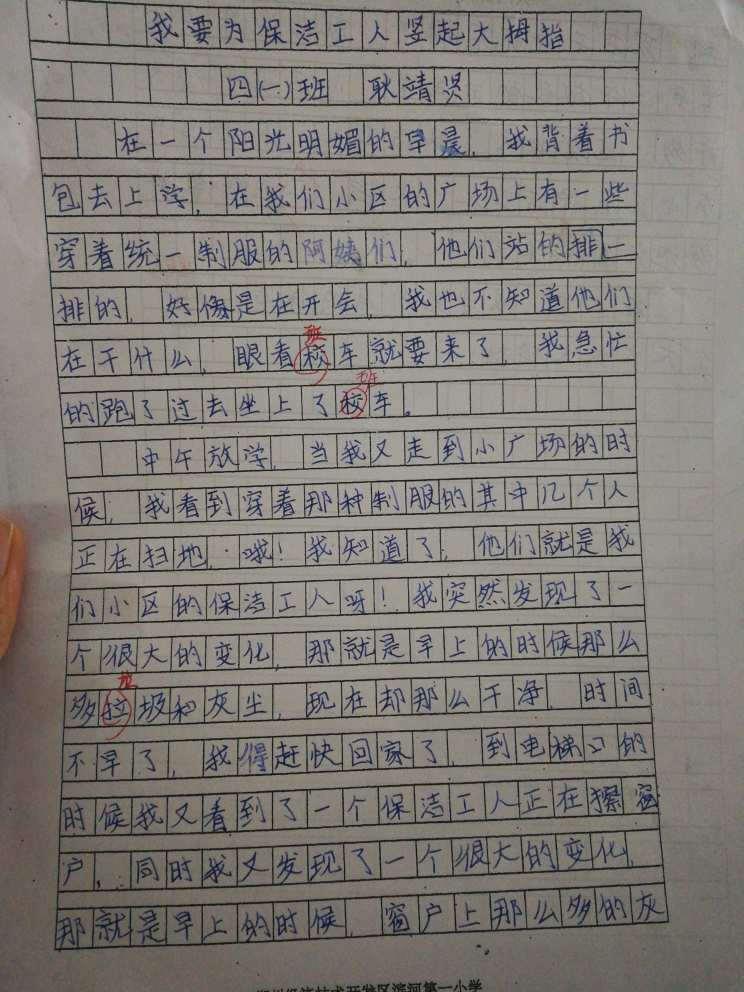 我要为保洁工人竖起大拇指
四(一)班 耿靖贤
在一个阳光明媚的早晨，我背着书
包去上学，在我们小区的广场上有一些
穿着统一制服的阿姨们，他们站的排一
排的，好像是在开会，我也不知道他们
在干什么，眼看校车就要来了，我急忙
的跑了过去坐上了校车。
中午放学，当我又走到小广场的时
候，我看到穿着那种制服的其中几个人
正在扫地，哦！我知道了，他们就是我
们小区的保洁工人呀！我突然发现了一
个很大的变化，那就是早上的时候那么
多拉圾和灰尘，现在却那么干净，时间
不早了，我得赶快回家了，到电梯口的
时候我又看到了一个保洁工人正在擦窗
户，同时我又发现了一个很大的变化，
那就是早上的时候，窗户上那么多的灰
经济技术开发区滨河第一小学